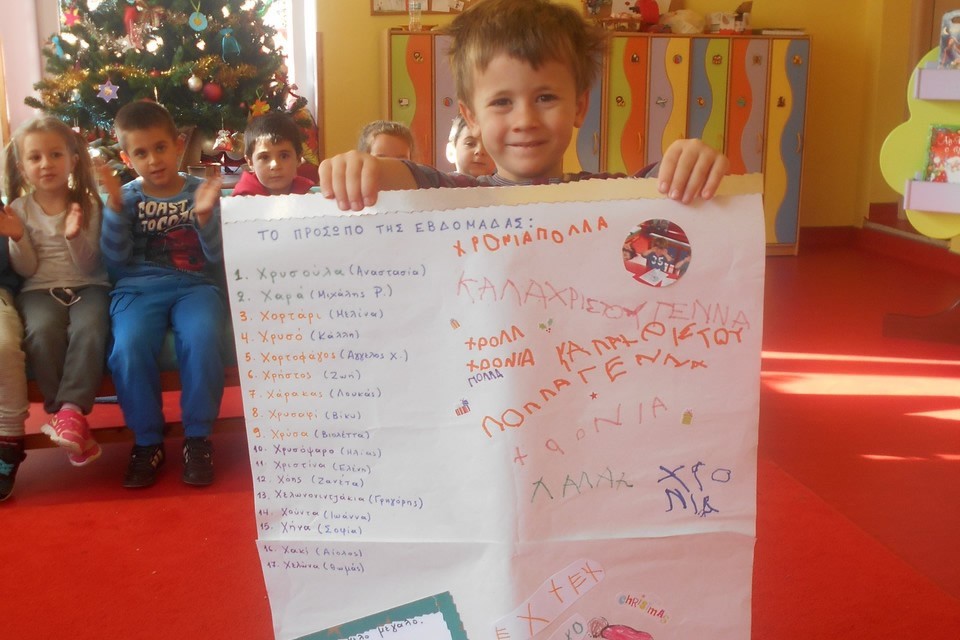 ΤΟ ΠΡΟΣΩΠΟ ΤΗΣ ΕΒΔΟΜΑΔΑΣ:
1. Χρυσούλα (Αναστασία)
2. Χαρά (Μιχάλης Ρ.)
3. Χορτάρι (Μελίνα)
4. Χρυσό (Κάλλη)
5. Χορτοφάγος (Άγγελος Χ.)
6. Χρήστος (Ζωή)
7. Χάρακας (Λουκάς)
8. Χρυσαφί (Βίκυ)
9. Χρύσα (Βιολέττα)
10. Χρυσόψαρο (Ηλίας)
11. Χριστίνα (Ελένη)
12. Χάπς (Ζανέτα)
13. Χελωνονιντζάκια (Γρηγόρης)
14. Χούντα (Ιωάννα)
15. Χήνα (Σοφία)
16. Χακί (Αίολος)
17. Χελώνα (Θωμάς)
ΧΡΟΝΙΑΠΟΛΛΑ
ΚΑΛΑΧΡΙΣΟΥΓΕΝΝΑ
ΧΡΟΛΛ
ΧΡΟΝΙΑ
ΠΟΛΛΑ
ΓΕΝΝΑ
ΛΑΛΑΛ
ΧΡΟ
ΝΙΑ
μεγάλο.
ChRiSTMAS
COAST
TO